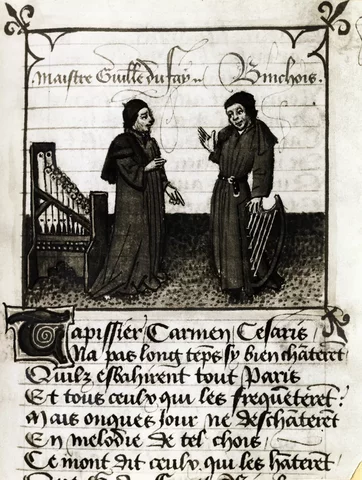 Maistre Guillē du fay Binchois.
Tapissier Carmen Cesaris
Na pas long tēps sy bien chāterēt
Quilz esbahirent tout Paris
Et tous ceulx qui les frequēterēt:
Mais onques Jour ne deschāterēt
En melodie de tel chois
Ce mont dit ceulx qui les hāterēt